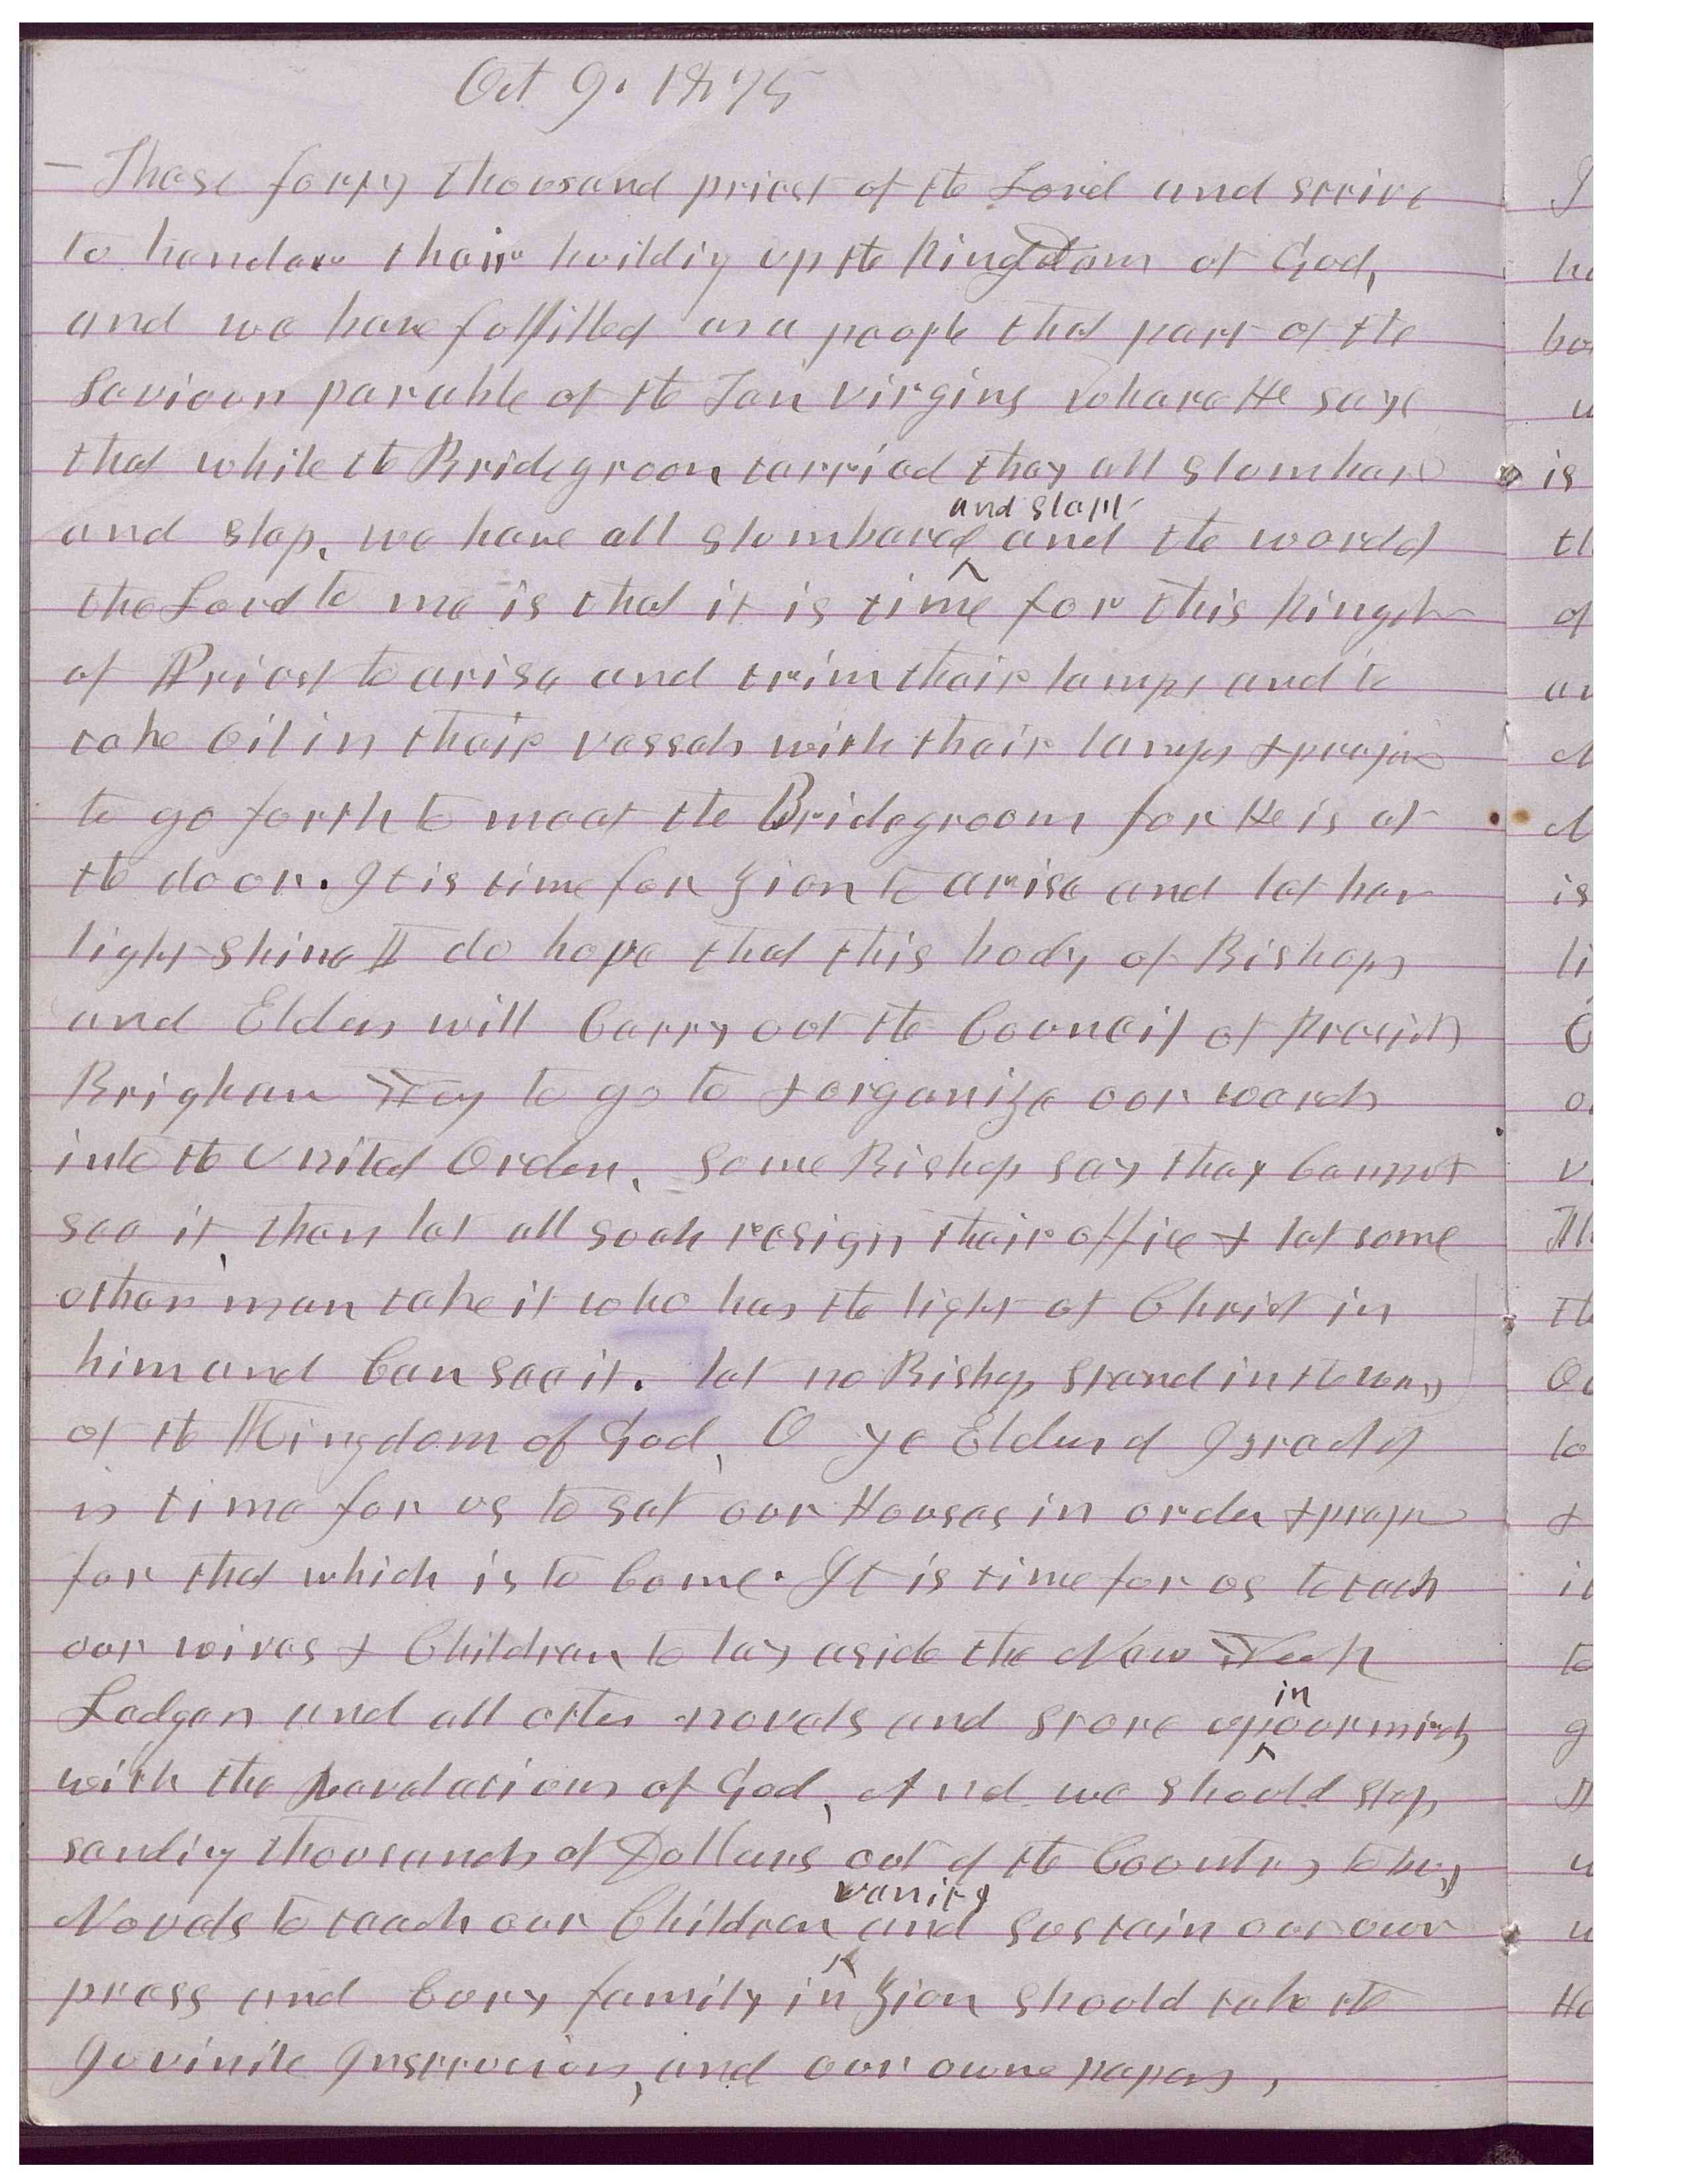 Oct 9. 1875
- These forty thousand priest of the Lord and strive
to hender their building up the Kingdom of God,
and we have fulfilled as a people that part of the
Saviour parable of the Ten virgins where He says
that while the Bridegroom tarried they all slumbered
and slep, we have all slumbered and slept and the word of
the Lord to me is that it is time for this Kingdom
of Priest to arise and trim their lamps and to
take oil in their vessels with their lamps & prepare
to go forth to meet the Bridegroom for He is at
the door. It is time for Zion to arise and let her
light shine I do hope that this body of Bishops
and Elders will Carry out the Council of Presidt
Brigham Young to go to & organize our wards
into the United Order, some Bishop say they Cannot
see it, then let all such resign their office & let some
other man take it who has the light of Christ in
him and Can see it. let no Bishop stand in the way
of the Kingdom of God, O ye Elders of Israel it
is time for us to set our Houses in order & prepare
for that which is to Come. It is time for us to teach
our wives & Children to lay aside the New York
Ledger and all other novels and store up in our minds
with the revelations of God, And we should stop
sending thousands of Dollars out of the Country to buy
Novels to teach our Children vanity and sustain our own
press and Evry family in Zion should take the
Juvinile Instructor, and our owne papers,